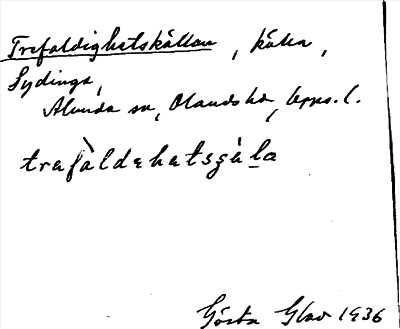 Trefaldighetskällan, källa,
Lydinge,
Alunda sn, Olands hd, Upps. l.
trefàldehetsçä̀l̲a
Gösta Glav 1936